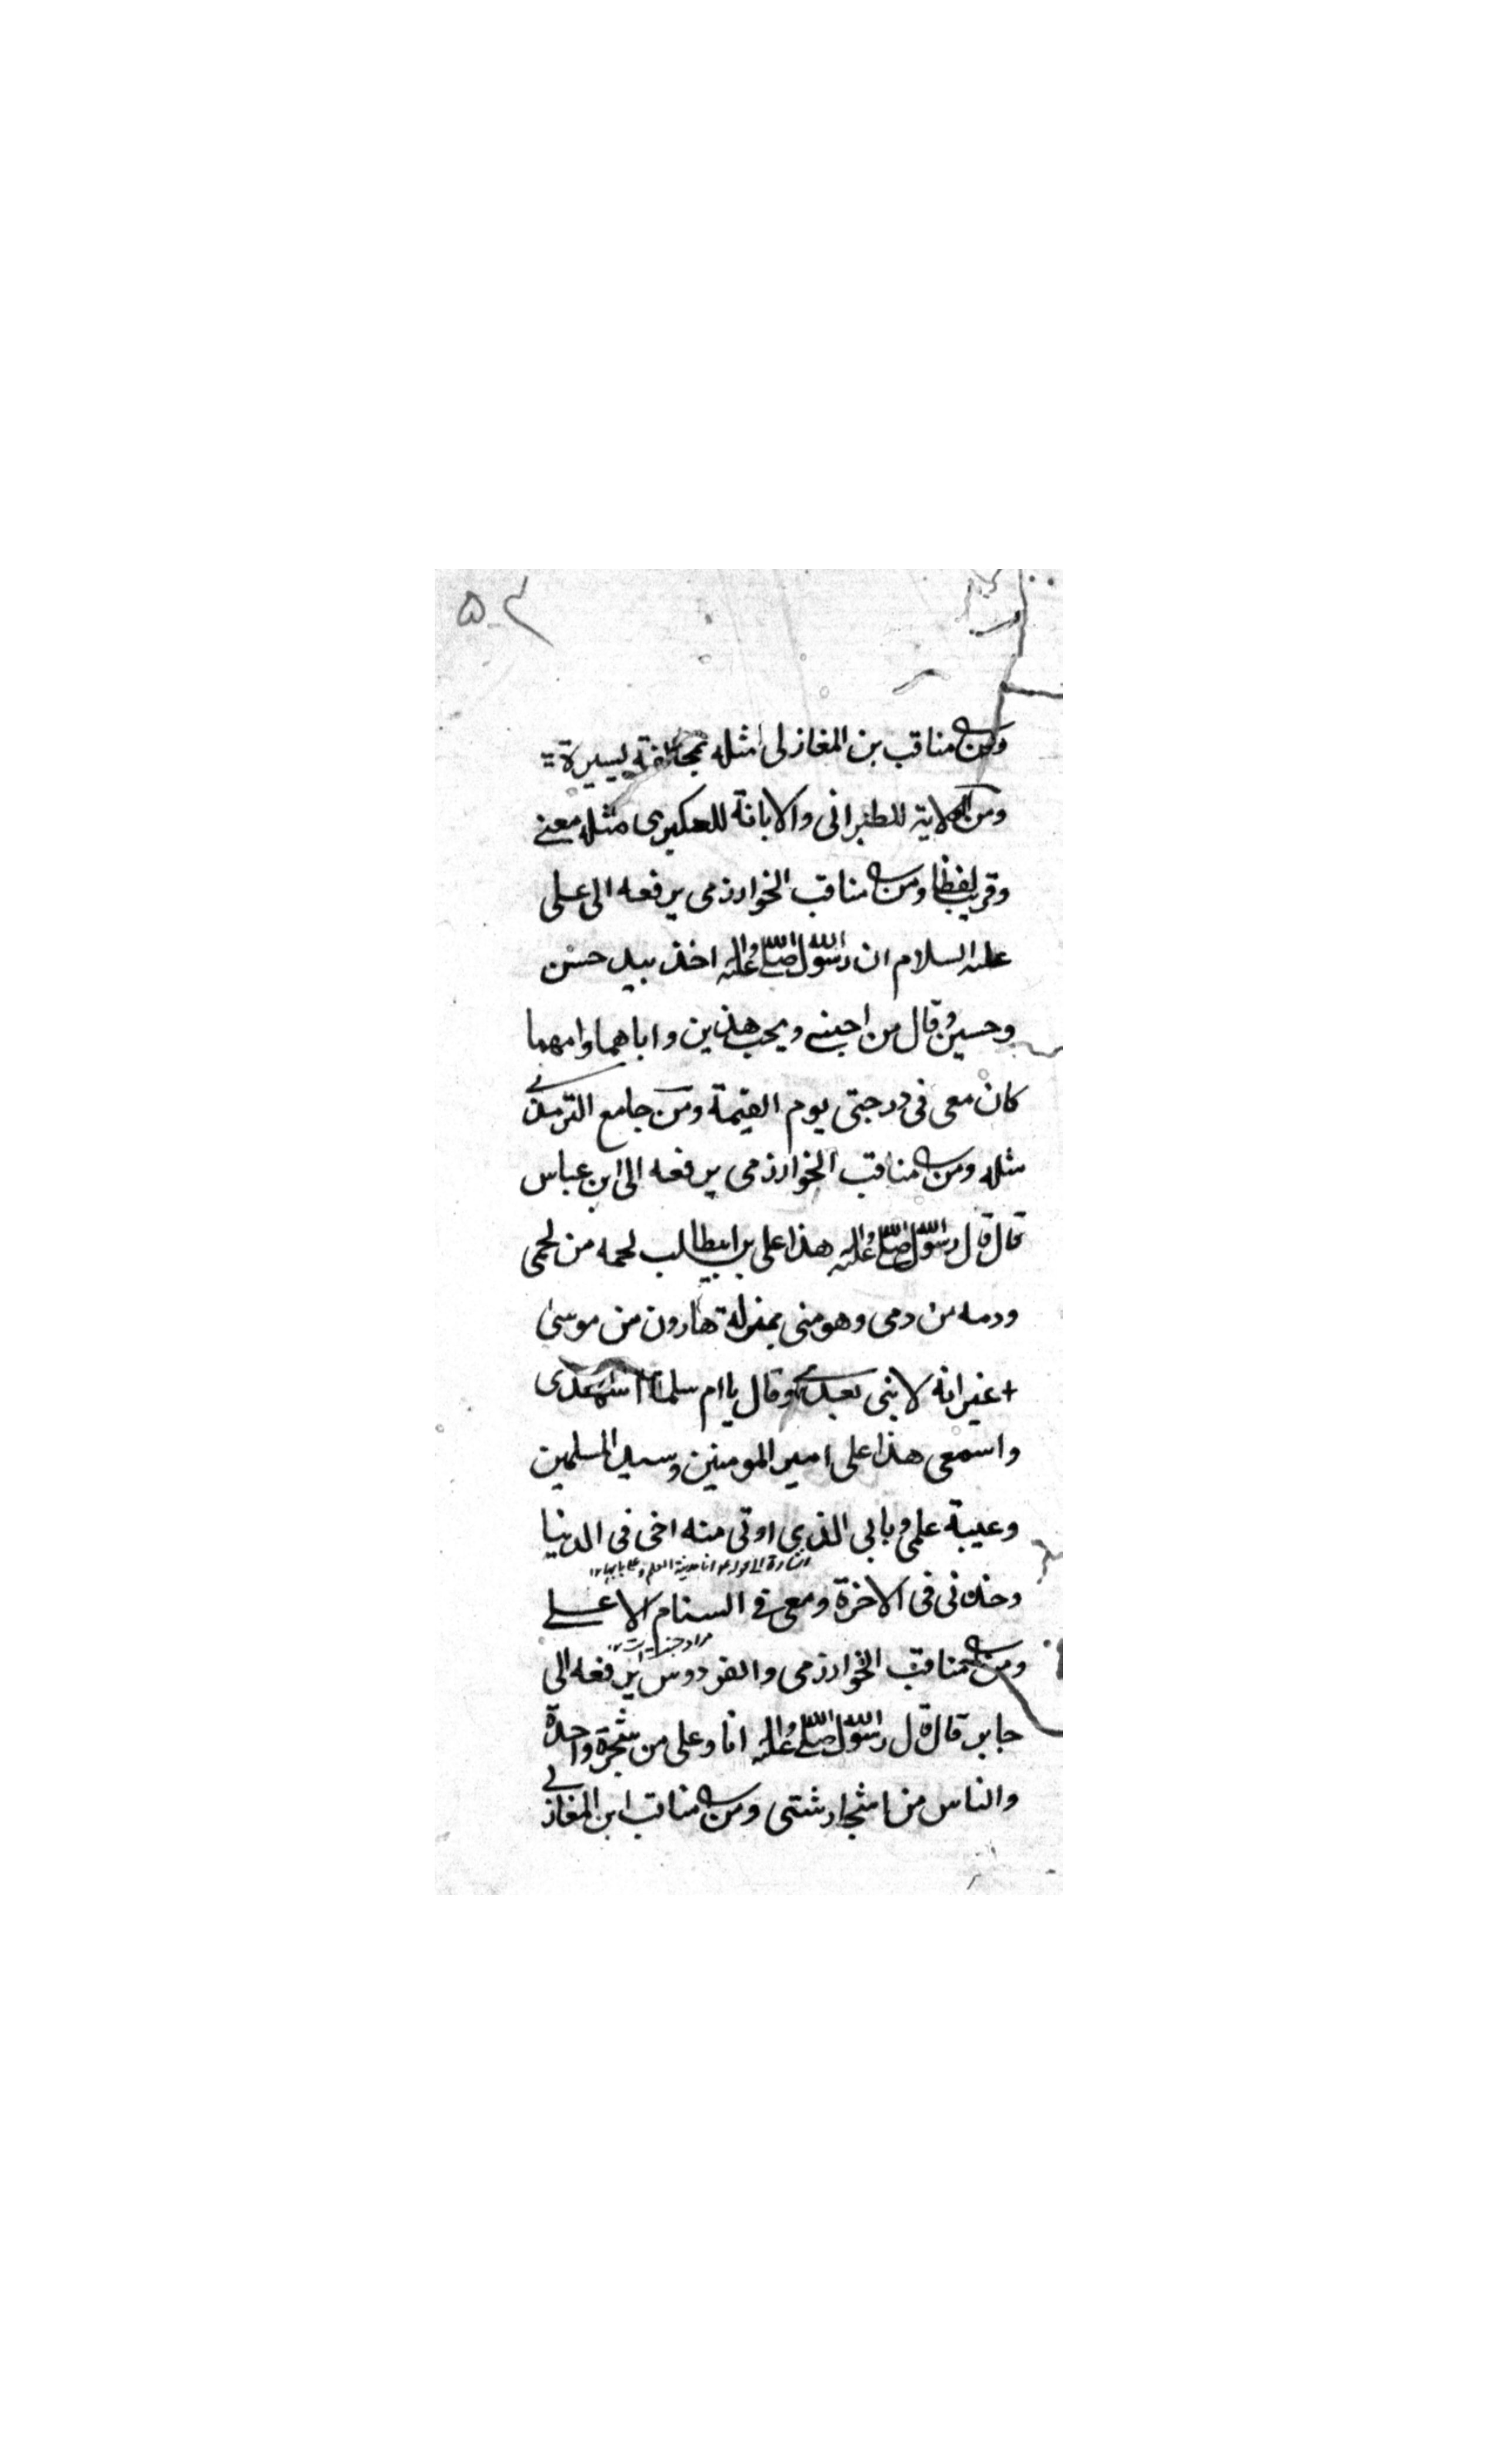 ومن مناقب بن المغازلى مثله بمخالفة يسيرة
ومن الولاية للطبرانى والابانة للعكبرى مثله معنے
وقريب لفظا ومن مناقب الخوارزمى يرفعه الى على
عليه السلام ان رسول الله صلى الله عليه واله اخذ بيد حسن
وحسين وقال من احبنے ويحب هذين واباهما وامهما
كان معى فى درجتى يوم القيمة ومن جامع الترمذے
مثله ومن مناقب الخوارزمى يرفعه الى ابن عباس
قال قال رسول الله صلى الله عليه واله هذا على بن ابيطالب لحمه من لحمى
ودمه من دمى وهو منى بمنزلة هارون من موسى
+ غير انه لا نبى بعدے وقال يا ام سلمة اشهدى
واسمعى هذا على امير المومنين وسيد المسلمين
وعيبة علمى وبابى الذى اوتى منه اخى فى الدنيا
انا مدينة العلم وعلى بابها ١٢
وخدنى فى الاخرة ومعى فے السنام الاعلے
مراد جنت ١٢
ومن مناقب الخوارزمى والفردوس يرفعه الى
جابر قال قال رسول الله صلى الله عليه واله انا وعلى من شجرة واحدة
والناس من اشجار شتى ومن مناقب ابن المغازلے